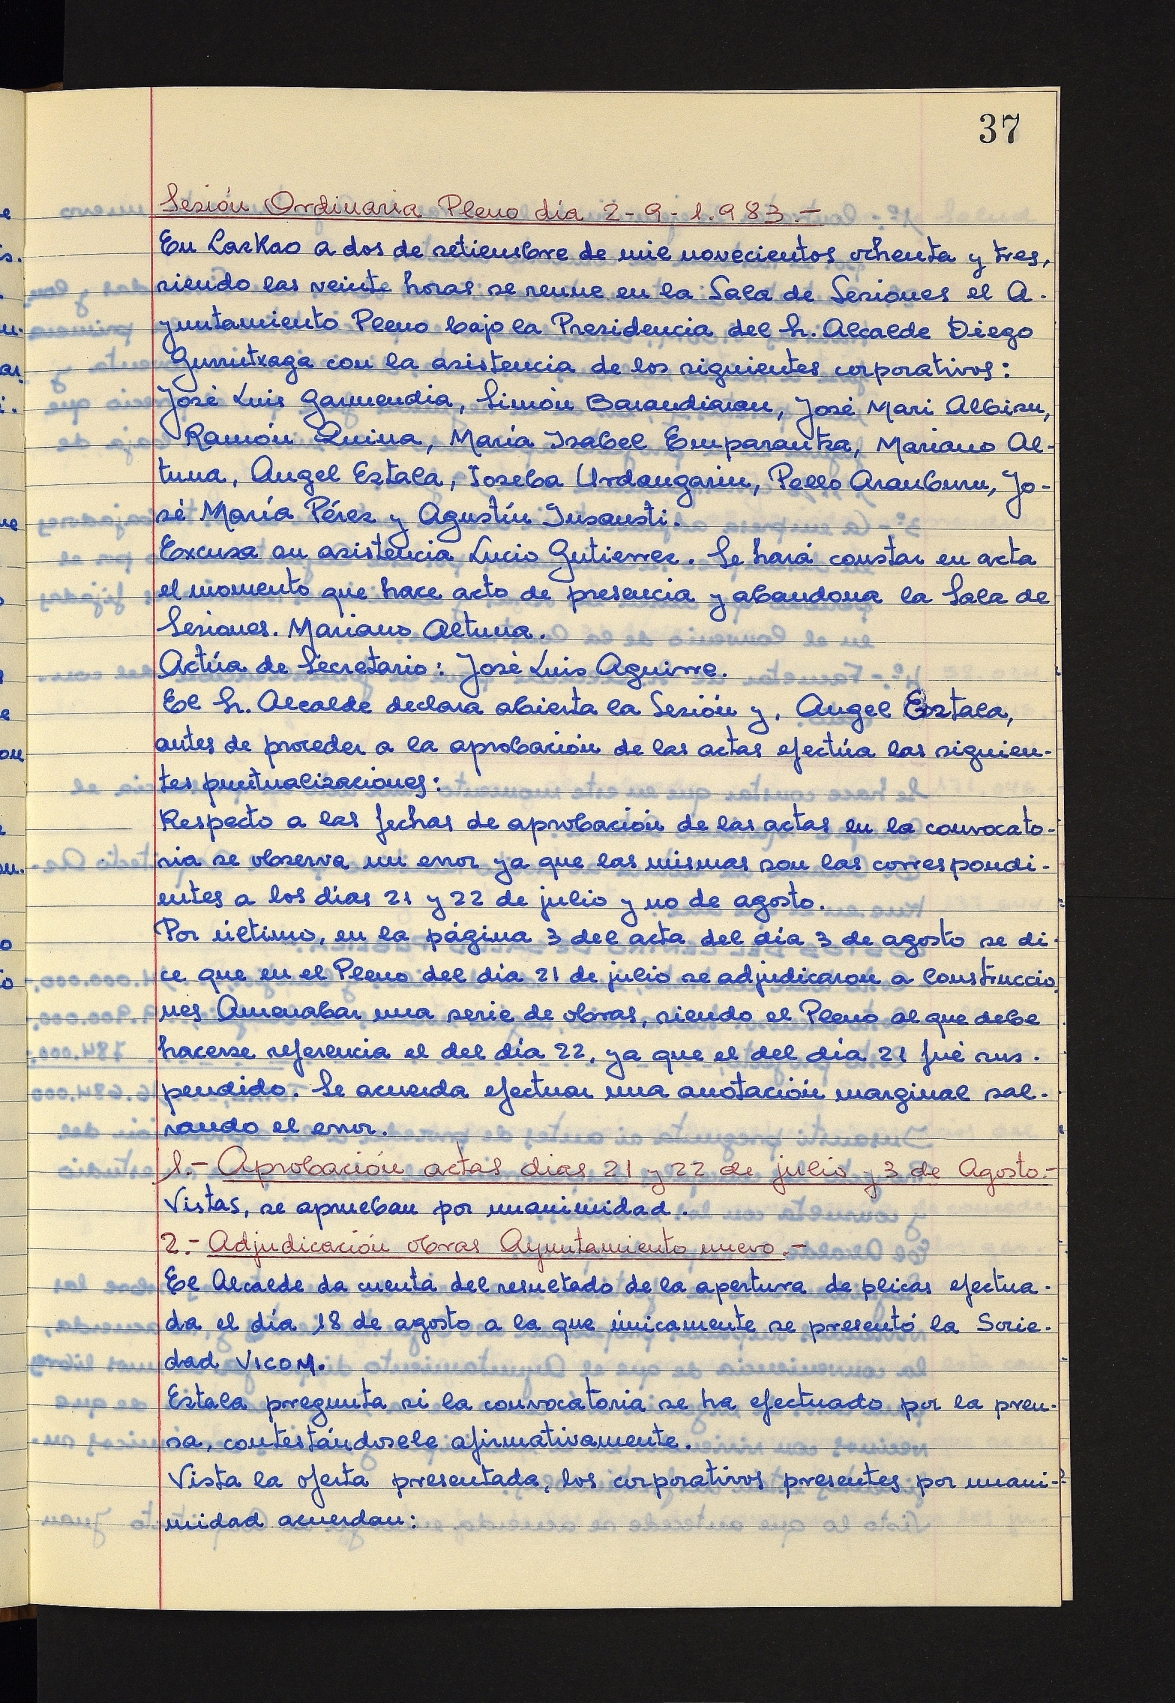 37
Sesión Ordinaria Pleno día 2-9-1.983.-
En Lazkao a dos de setiembre de mil novecientos ochenta y tres,
siendo las veinte horas se reune en la Sala de Sesiones el A-
yuntamiento Pleno bajo la Presidencia del Sr. Alcalde Diego
Gurrutxaga con la asistencia de los siguientes corporativos:
José Luis Garmendia, Simón Barandiaran, José Mari Albisu,
Ramón Quina, María Isabel Emparantza, Mariano Al-
tuna, Angel Eztala, Joseba Urdangarin, Pello Aranburu, Jo-
sé María Pérez y Agustín Insausti.
Excusa su asistencia Lucio Gutierrez. Se hará constar en acta
el momento que hace acto de presencia y abandona la Sala de
Sesiones. Mariano Altuna.
Actúa de Secretario: José Luis Aguirre.
El Sr. Alcalde declara abierta la Sesión y, Angel Eztala,
antes de proceder a la aprobación de las actas efectúa las siguien-
tes puntualizaciones:
Respecto a las fechas de aprobación de las actas en la convocato-
ria se observa un error ya que las mismas son las correspondi-
entes a los días 21 y 22 de julio y no de agosto.
Por último, en la página 3 del acta del día 3 de agosto se di-
ce que en el Pleno del día 21 de julio se adjudicaron a Construccio
nes Amenabar una serie de obras, siendo el Pleno al que debe
hacerse referencia el del día 22, ya que el del día 21 fué sus-
pendido. Se acuerda efectuar una anotación marginal sal-
vando el error.
1.- Aprobación actas dias 21 y 22 de julio y 3 de Agosto.-
Vistas, se aprueban por unanimidad.
2.- Adjudicación obras Ayuntamiento nuevo.-
El Alcalde da cuenta del resultado de la apertura de plicas efectua-
da el día 18 de agosto a la que únicamente se presentó la Socie-
dad VICOM.
Eztala pregunta si la convocatoria se ha efectuado por la pren-
sa, contestándosele afirmativamente.
Vista la oferta presentada, los corporativos presentes por unani-
midad acuerdan: